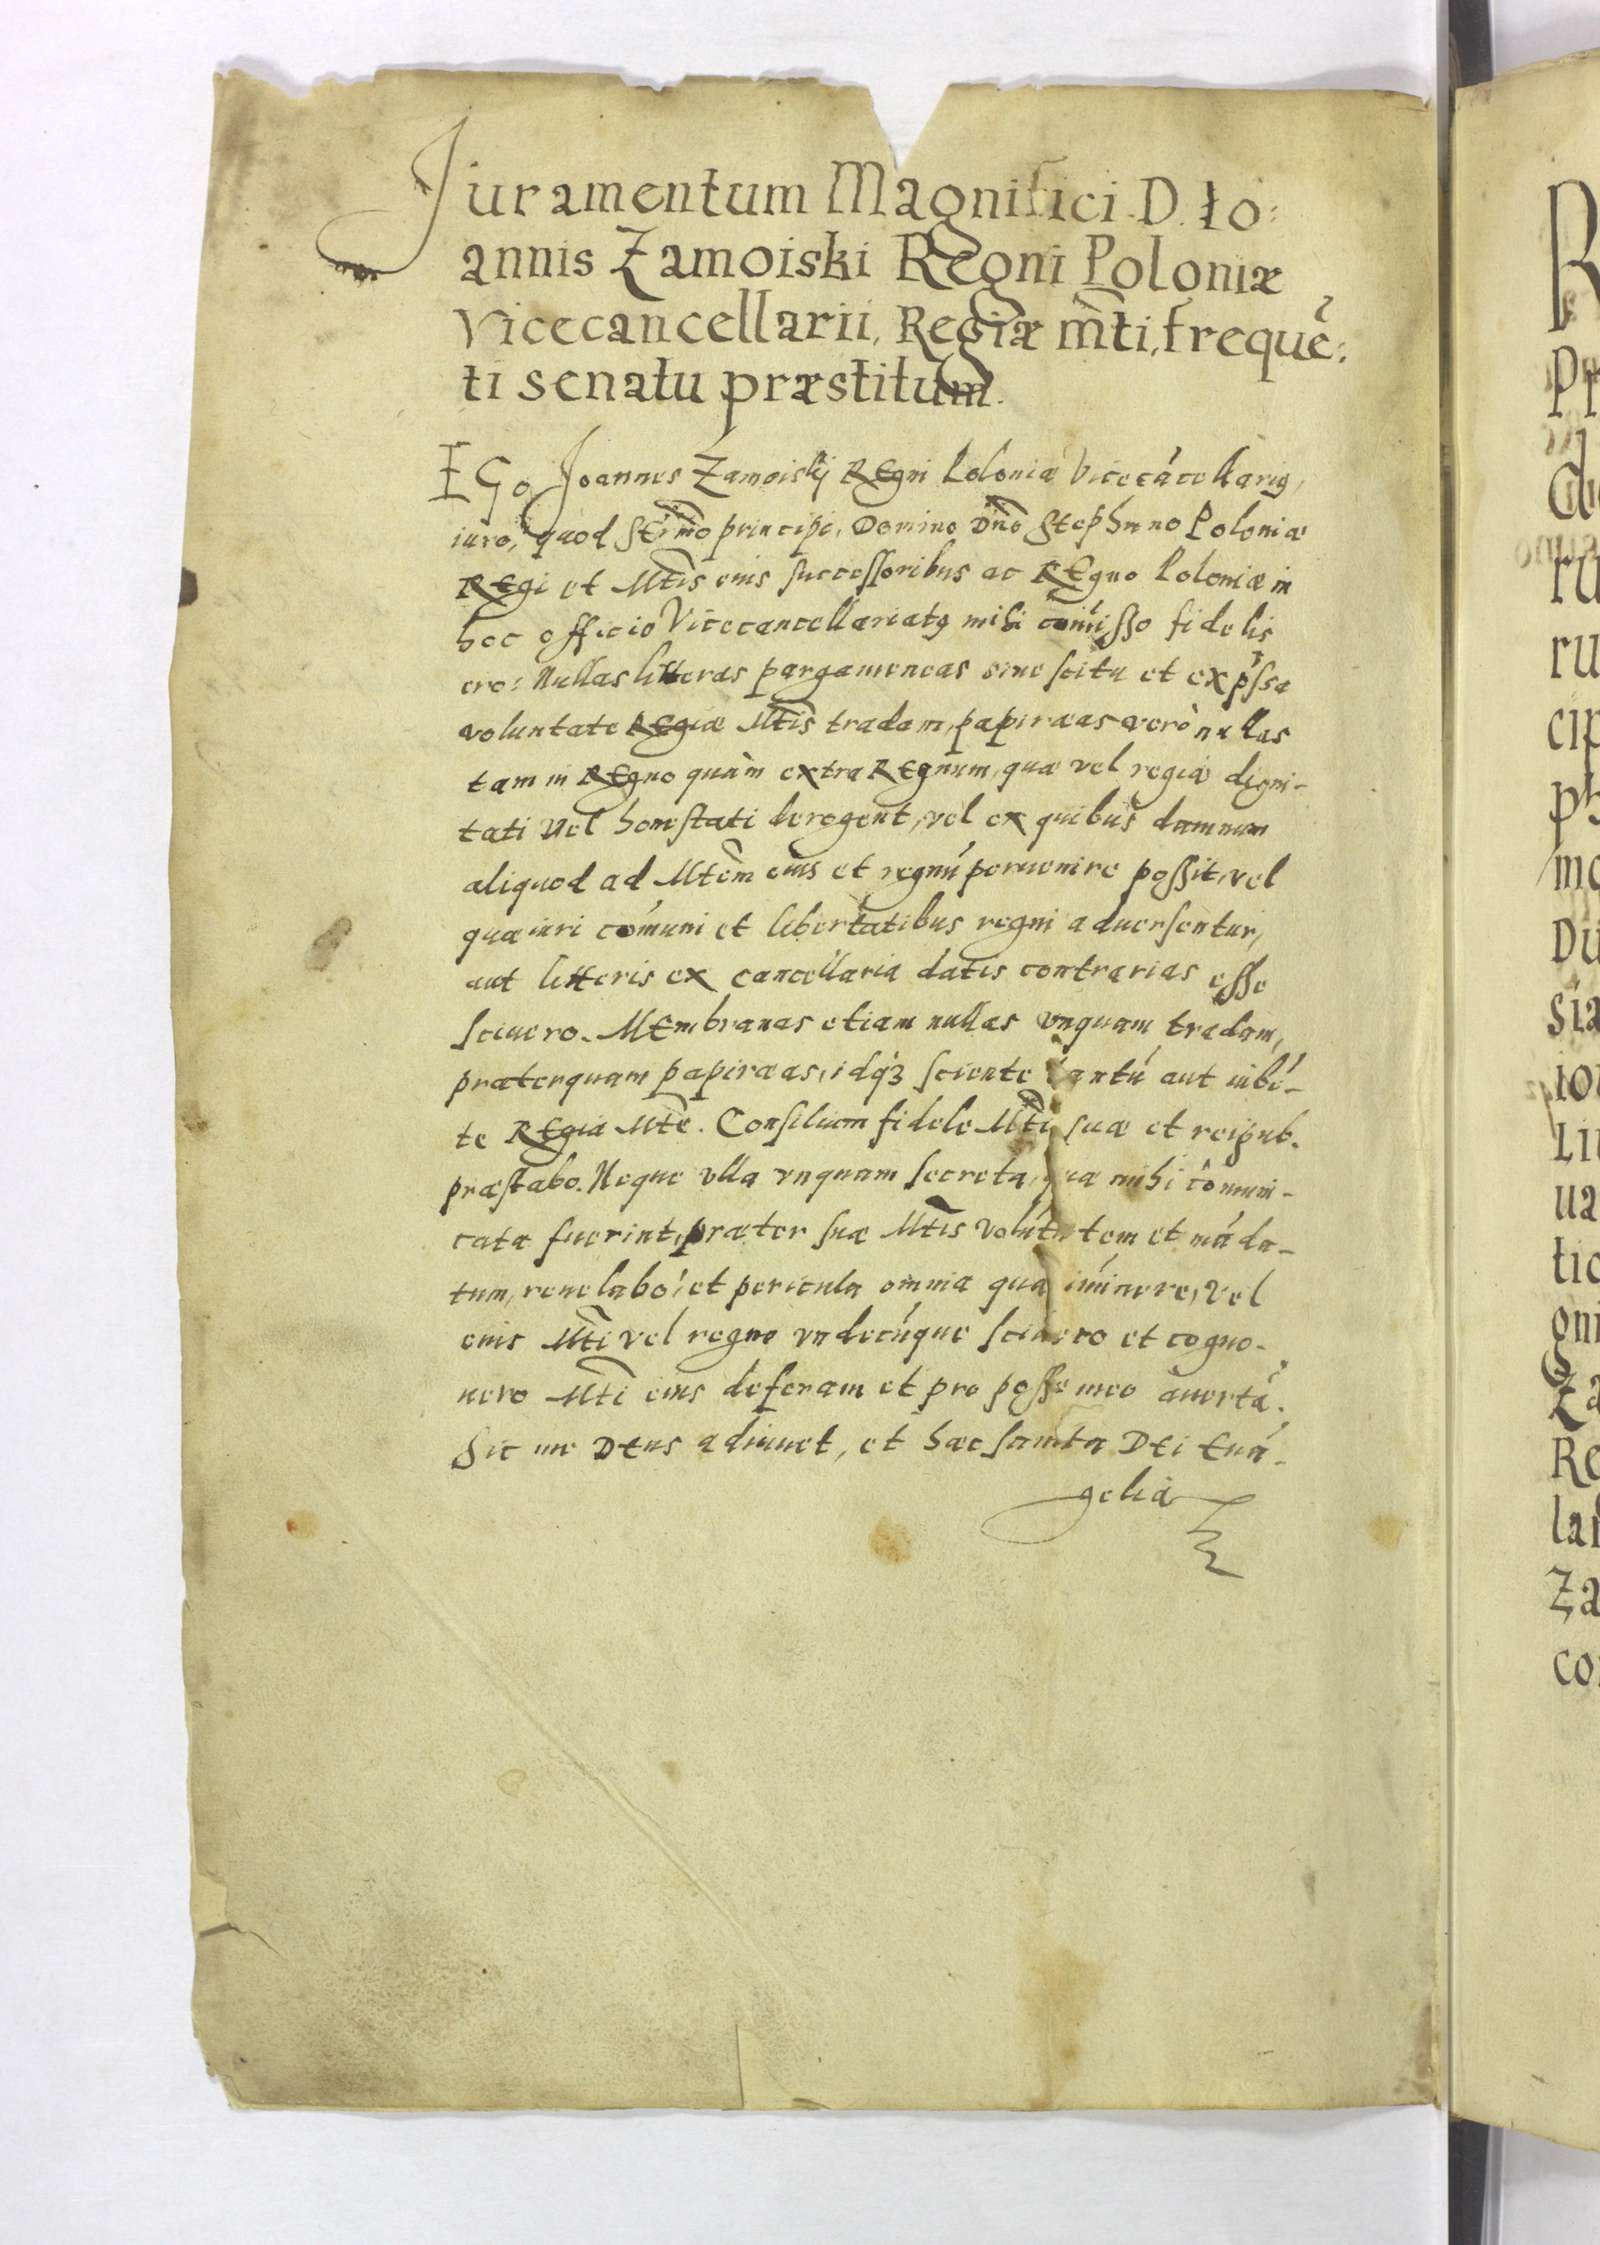 Juramentum Magnifici D. Io:
annis Zamoiski Regni Poloniæ
Vicecancellarii, Regiæ m̃ti, frequẽ:
ti senatu præstitum.
EGo Joannes Zamoiskij REgni Poloniæ Vicecácellarig,
iuro, quod Sermõ principi, Domino Dño Stephano Poloniæ
REgi et Mtis eius successoribus ac REgno Poloniæ in
hoc officio Vicecancellariatg mihi comisso fidelis
ero: Nullas litteras pargameneas sine scitu et expssa
voluntate REgiæ Mtis tradam, papiræas verò nullas
tam in REgno quàm extra REgnum, quæ vel regiæ digni-
tati vel honestati derogent, vel ex quibus damnum
aliquod ad Mtem eius et regnú peruenire possit, vel
quæ iuri cómuni et libertatibus regni aduersentur,
aut litteris ex cancellaria datis contrarias esse
sciuero. MEmbranas etiam nullas vnquam tradam,
præterquam papiræas, idq3 sciente tantú aut iubé-
te REgia Mte. Consilium fidele Mti suæ et reipub.
præstabo. Neque vlla vnquam secreta, quæ mihi cómuni-
cata fuerint, præter suæ Mtis volútatem et máda-
tum, reuelabo: et pericula omnia quæ iminere, vel
eius Mti vel regno vndecúque sciuero et cogno-
uero Mti eius deferam et pro posse meo auertá.
Sic me DEus adiuuet, et hæc sancta DEi Euá-
gelia
R
P
ru
ru
cip
ph
mo
Du
sia
ion
Lit
ua
tio
oni
Za
Re
las
Za
co